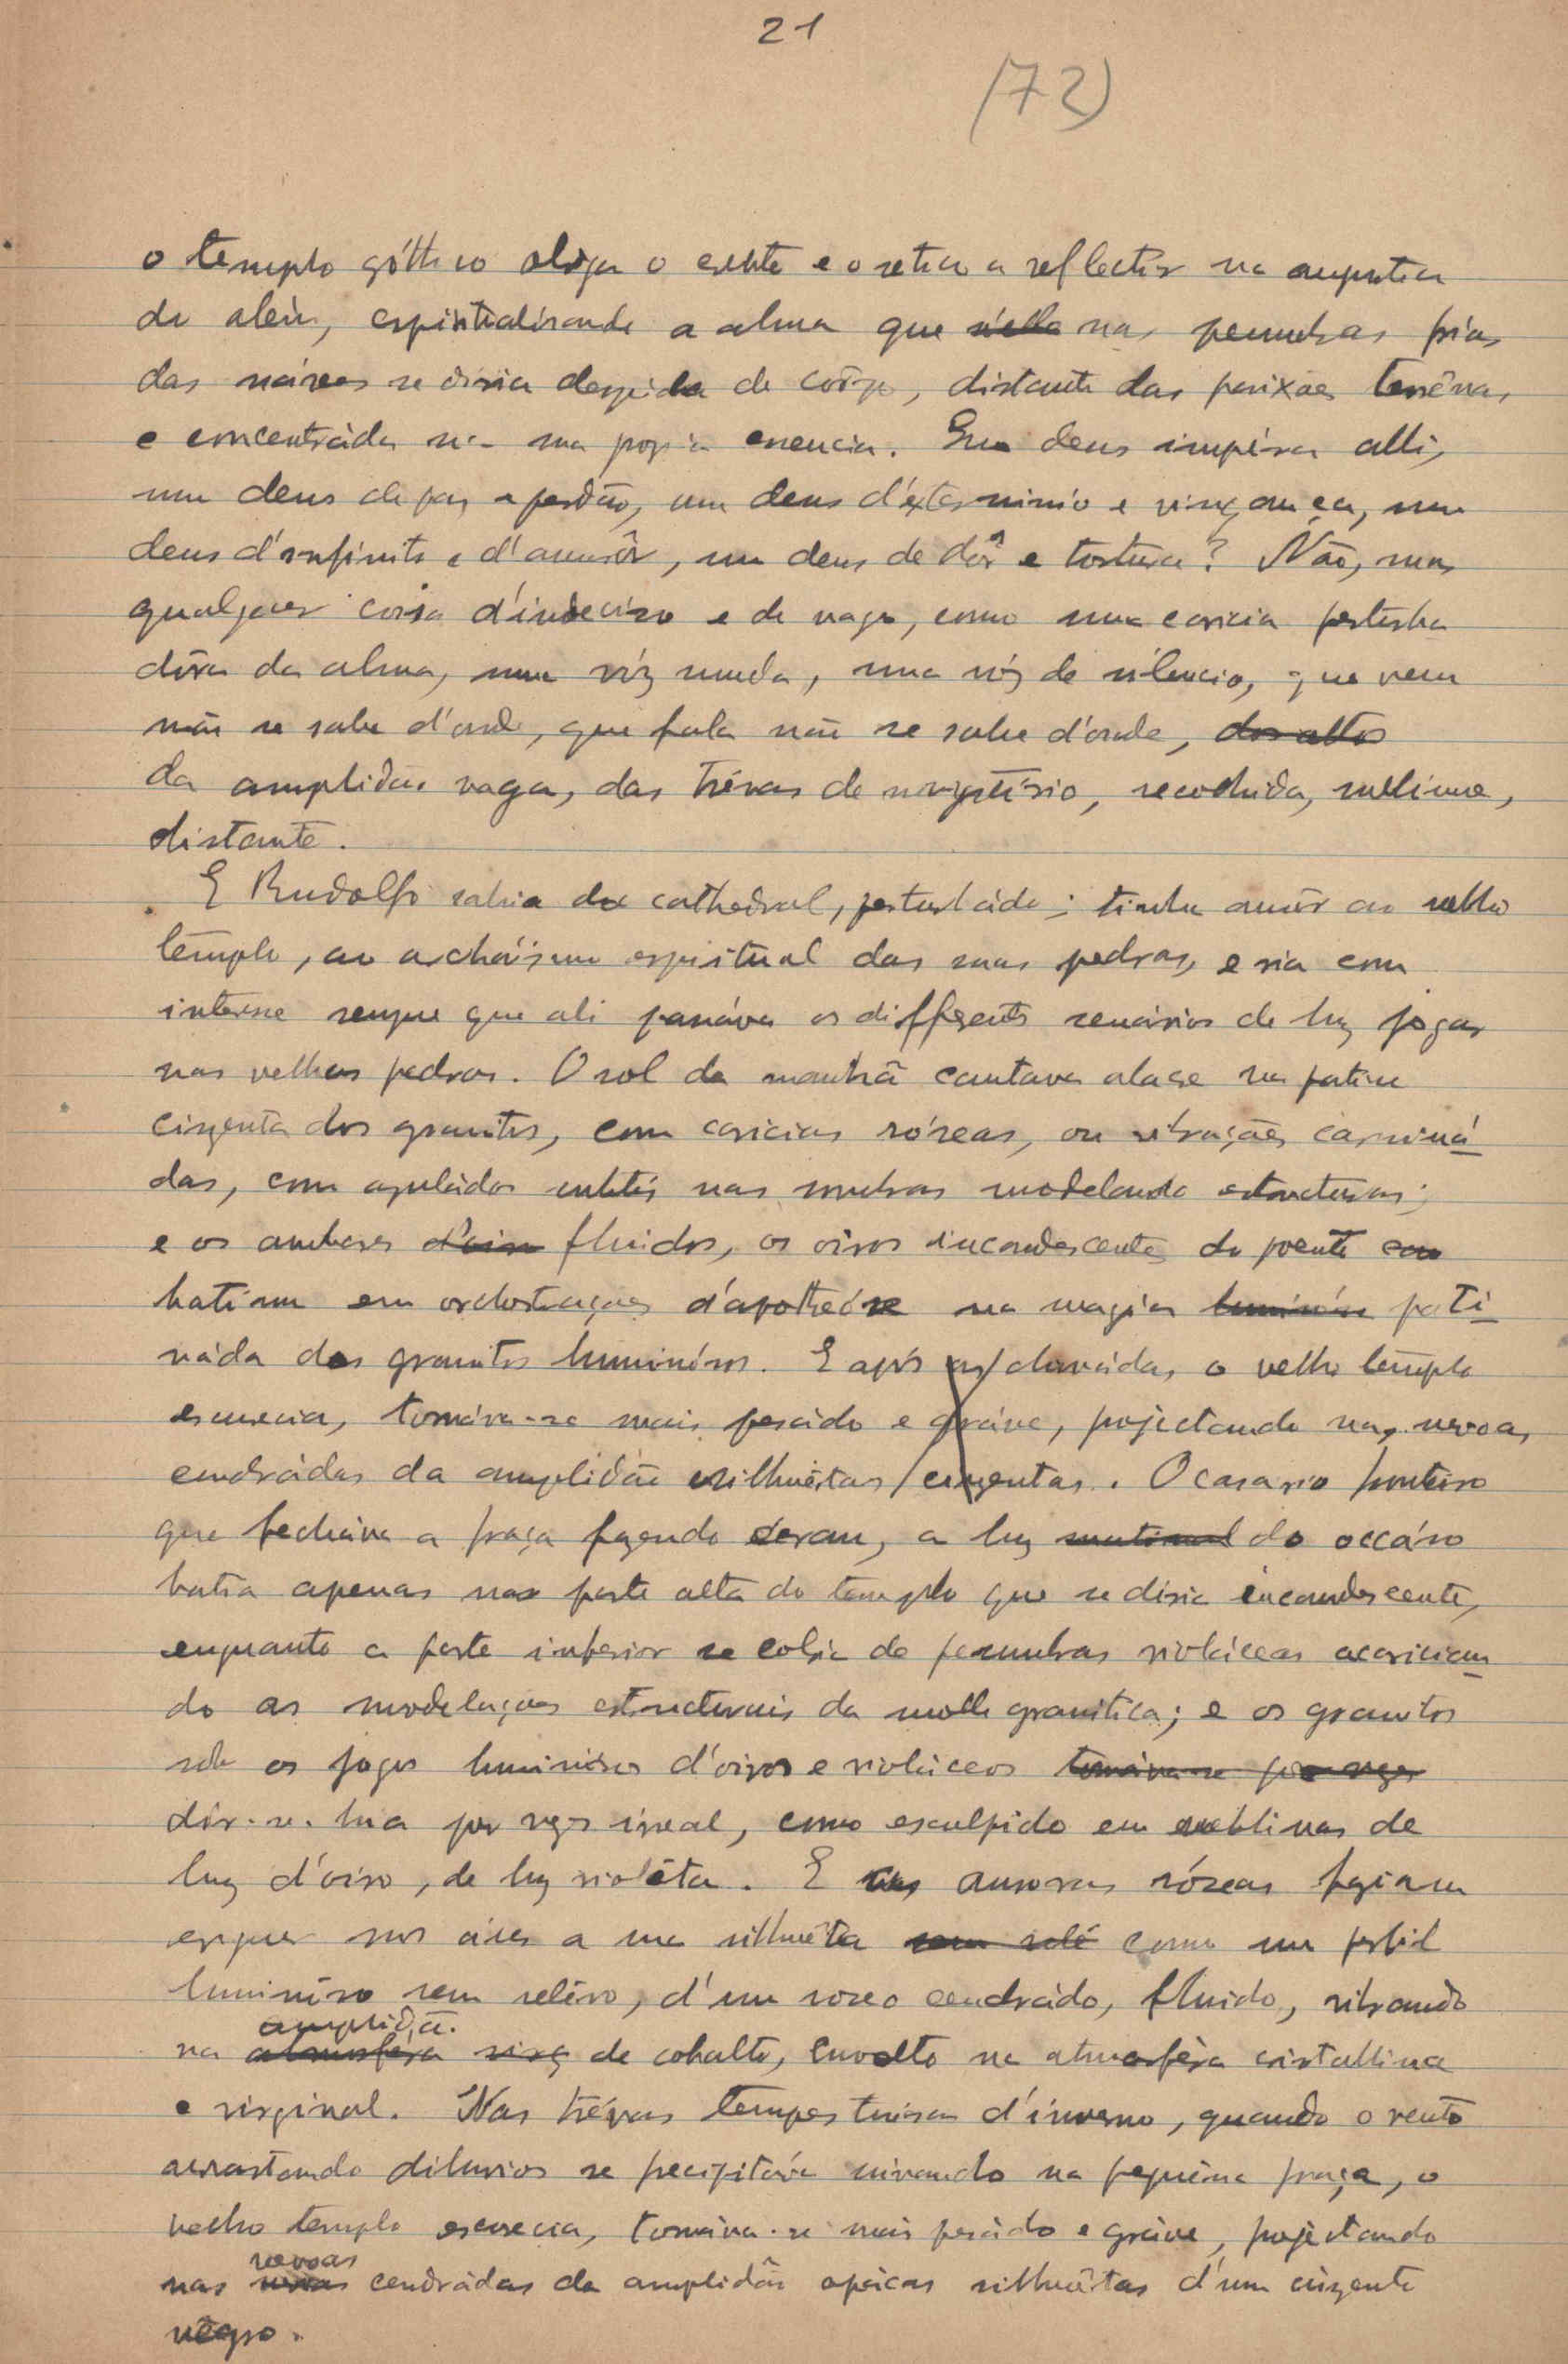 21
(72)
o templo góttico aloja o crente e o reticu a reflectir na angustia
do além, espiritualisando a alma que n'ella nas penumbras frias
das náves se diria despida de côrpo, distante das paixões terrênas,
e concentráda na sua propia essencia. Que deus impéra alli,
um deus de paz e perdão, um deus d'exterminio e vingança, um
deus d'infinito e d'amôr, um deus de dôr e tortura? Não, mas
qualquer coisa d'indeciso e de vago, como uma caricia perturba
dôra da alma, uma vóz muda, uma vóz de silencio, que vem
não se sabe d'onde, que fala não se sabe d'onde, dos altos
da amplidão vaga, das trévas de mystério, recolhida, sublime,
distante.
E Rudolfo sahia da cathedral, perturbádo; tinha amôr ao velho
templo, ao archaismo espiritual das suas pedras, e via com
interesse sempre que ali passáva os differentes scenários de luz jogar
nas velhas pedras. O sol da manhã cantava alacre na patine
cinzenta dos granitos, com caricias róseas, ou vibrações carminá
das, com azuládos subtis nas sombras modelando estructuras;
e os ambares d'oiro fluidos, os oiros incandescentes do poente
batiam em orchestrações d'apotheóse na magia luminósa pati
náda dos granitos luminósos. E após as chuvádas, o velho templo
escurecia, tornáva-se mais pesádo e gráve, projectando nas nevoas,
cendrádas da amplidão silhuêtas cinzentas. O casario fronteiro
que fecháva a praça fazendo écran, a luz matinal do occáso
batia apenas na parte alta do templo que se diria incandescente,
enquanto a parte inferior se cobria de penumbras violáceas acarician
do as modelações estructurais da molle granitica; e os granitos
sob os jogos luminósos d'oiros e violáceos tornáva-se por vezes
dir-se-hia por vezes irreal, como esculpido em neblinas de
luz d'oiro, de luz violêta. E as auroras róseas faziam
erguer nos áres a sua silhuêta sem relê como um perfil
luminóso sem relêvo, d'um roseo cendrádo, fluido, vibrando
amplidã.
na atmosféra virg de cobalto, envolto na atmosféra cristallina
e virginal. Nas trévas tempestuósas d'inverno, quando o vento
arrastando diluvios se precipitáva uivando na pequêna praça, o
velho templo escurecia, tornáva-se mais pesádo e gráve, projectando
nevoas
nas nevoas cendrádas da amplidão opácas silhuêtas d'um cinzento
nêgro.